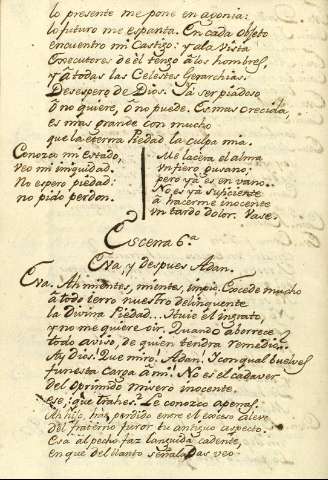 lo presente me pone en agonia:
lo futuro me espanta. En cada objeto
encuentro mi Castigo: y a la vista
Executores de èl tengo à los hombres,
y à todas las Celestes Gerarchias.
Desespero de Dios. Ya ser piadoso
ò no quiere, ò no puede. Es mas crecida,
es mas grande con mucho
que la eterna Piedad la culpa mia.
Conozco mi estado,
veo mi iniquidad.
No espero piedad:
no pido perdon.
Me lacera el alma
un fiero gusano;
pero ya es en vano.
No es ya suficiente
à hacerme inocente
un tardo dolor. Vase.
Escena 6.ª
Eva, y despues Adan.
Eva. Ah mientes, mientes, impio. Excede mucho
à todo ierro nuestro delinquente
la Divina Piedad... Huie el ingrato,
y no me quiere oir. Quando aborrece
todo aviso, de quien tendra remedio?
Ay Dios! Que miro! Adan! I con qual buelves
funesta carga à mi! No es el cadaver
del oprimido misero inocente
ese, que trahes? Le conozco apenas.
Ah hijo, has perdido entre el exceso aleve
del fraterno furor tu antiguo aspecto.
Esa al pecho faz languida cadente,
en que del llanto señaladas veo